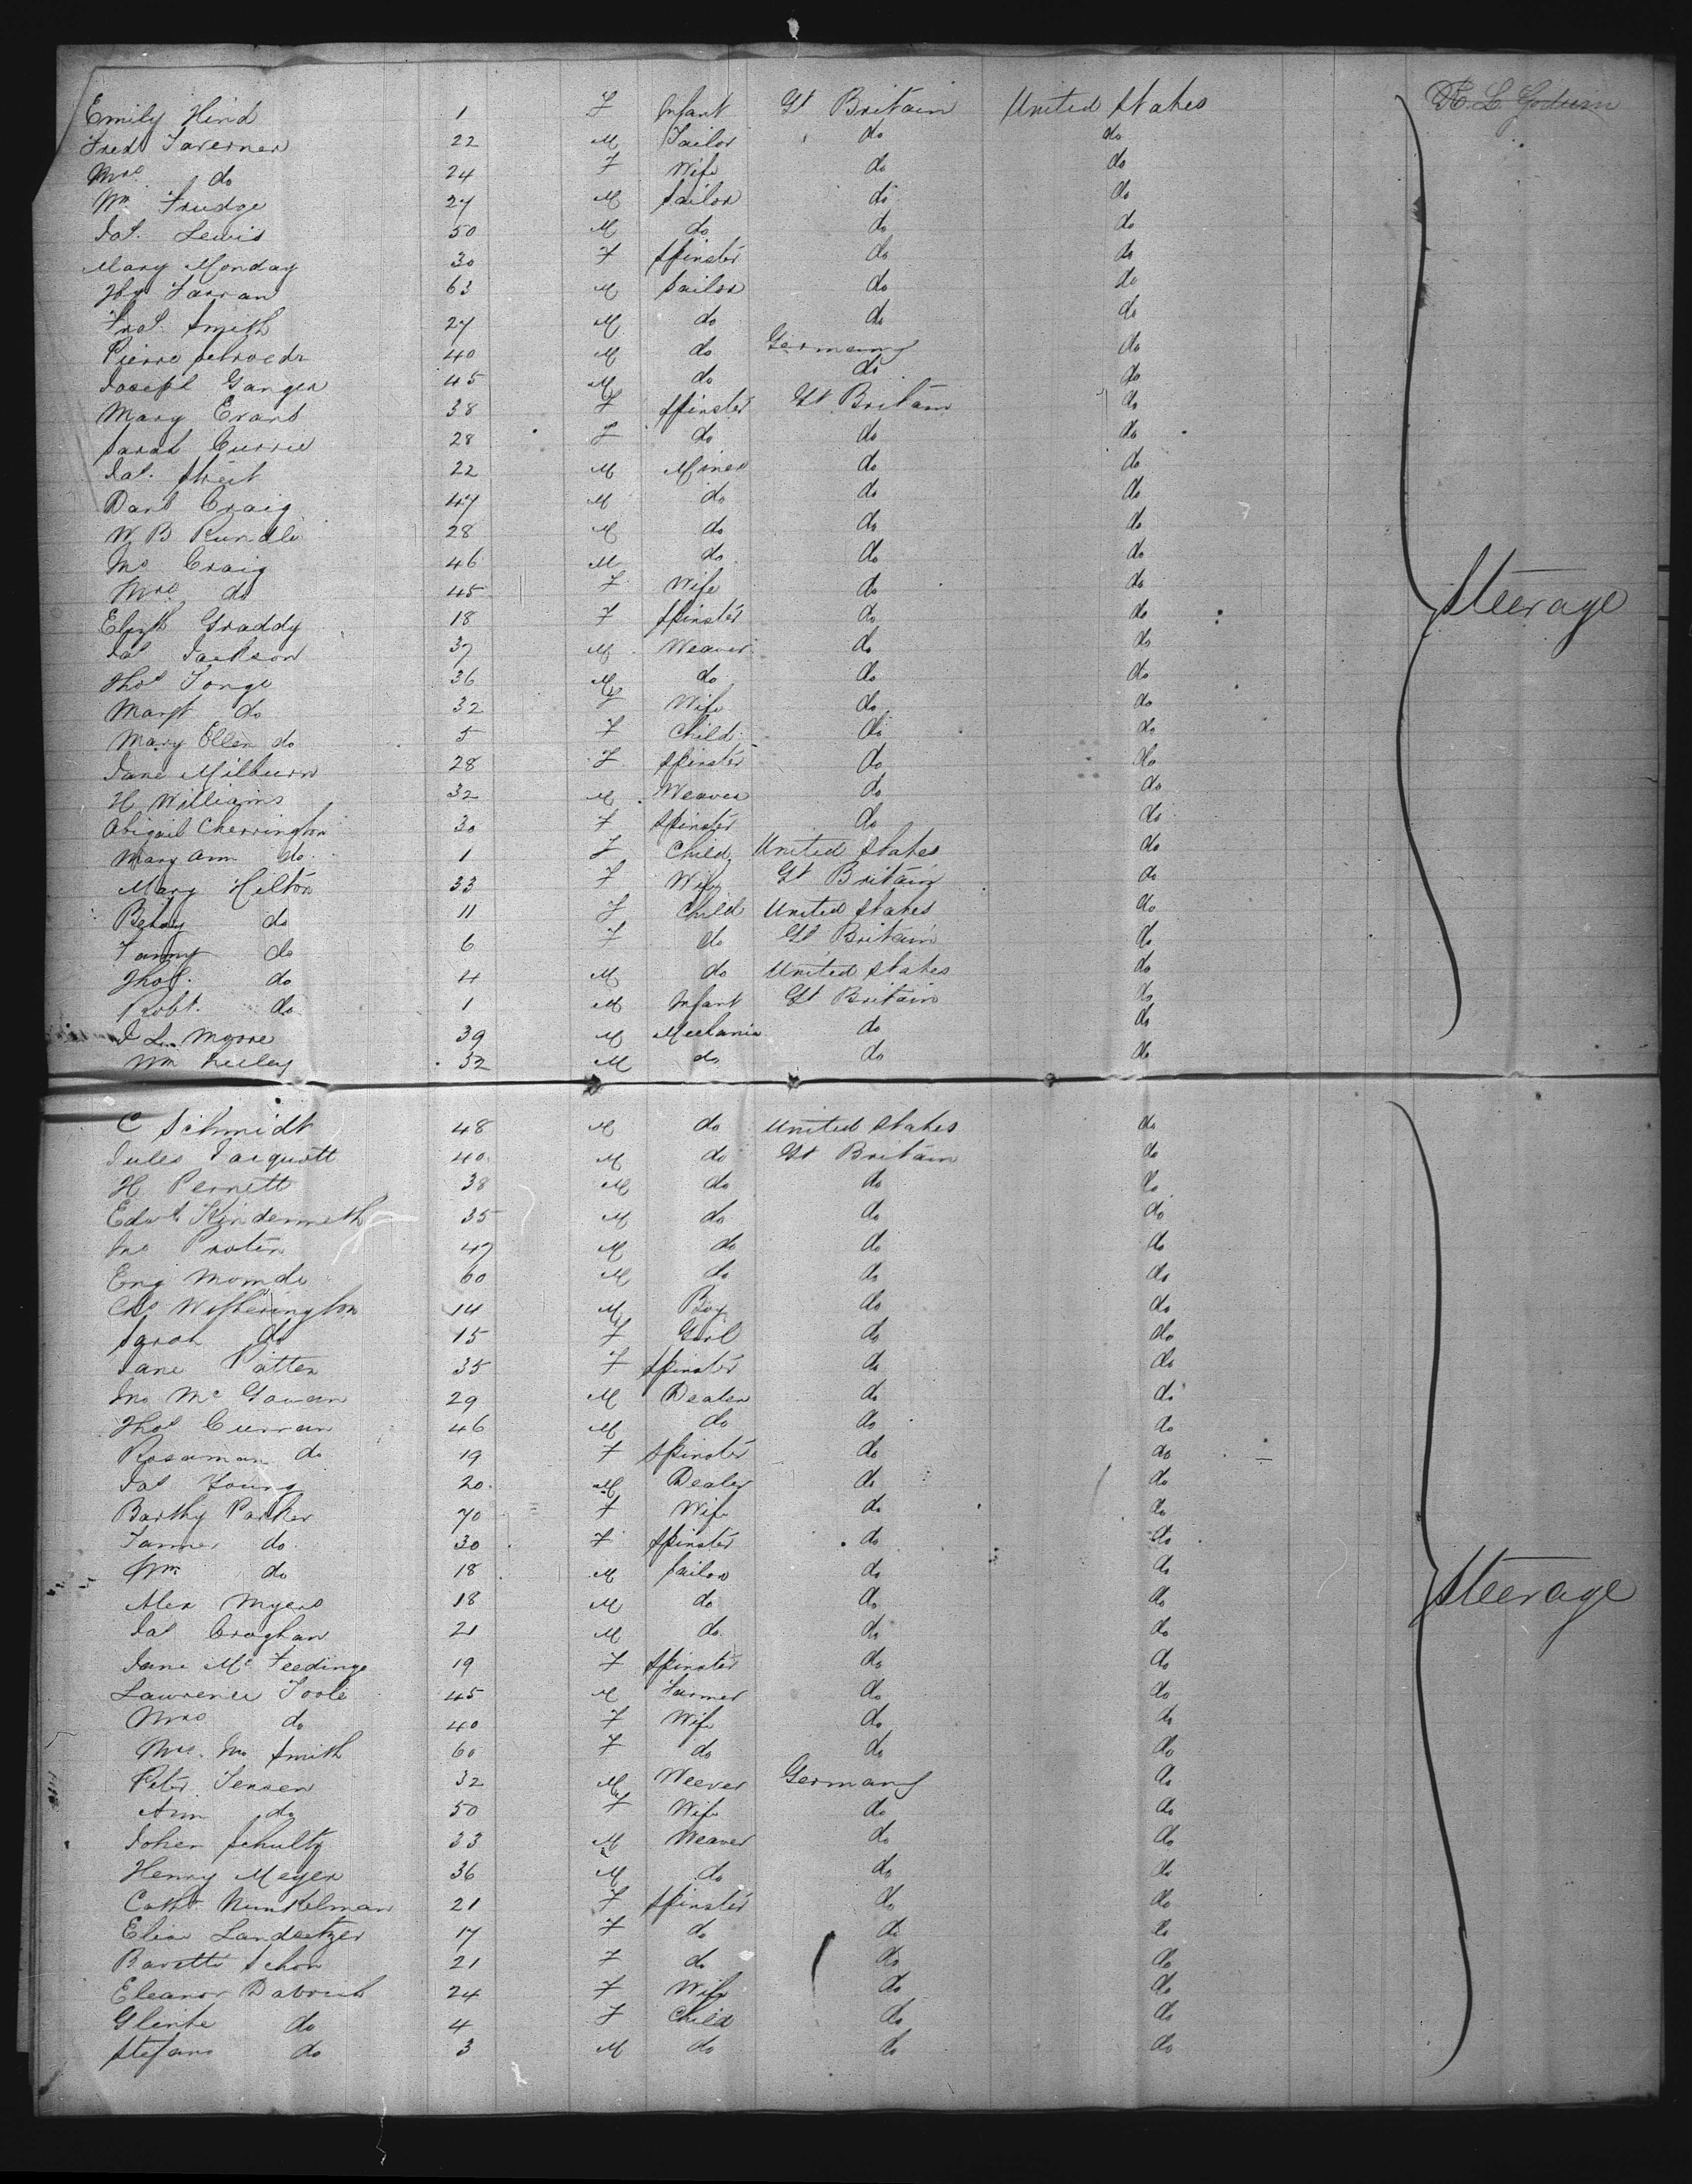 Emily Hind 1 F Infant Gt Britain United States R. L. Goduin
Fredk Taverner 22 M Tailor do do
Mrs do 24 F Wife do do
Wm Trudge 27 M Sailor do do
Jas. Lewis 50 M do do do
Mary Monday 30 F Spinster do do
Hy Farran 63 M Sailor do do
Fras. Smith 27 M do do do
Pierre Schroedr 40 M do Germany do
Joseph Ganger 45 M do do do
Mary Evans 38 F Spinster Gt Britain do
Sarah Currie 28 F do do do
Jas. Street 22 M Miner do do
Danl Craig 47 M do do do
W B Rundle 28 M do do do
Jno Craig 46 M do do do
Mrs do 45 F Wife do do
Elizth Graddy 18 F Spinster do do
Steerage
Jas Jackson 37 M Weaver do do
Thos Tonge 36 M do do do
Margt do 32 F Wife do do
Mary Ellen do 5 F Child do do
Jane Milburn 28 F Spinster do do
H Williams 32 M Weaver do do
Abigail Cherrington 30 F Spinster do do
Mary Ann do 1 F Child United States do
Mary Hilton 33 F Wife Gt Britain do
Betsy do 11 F Child United States do
Fanny do 6 F do Gt Britain do
Thos. do 4 M do United States do
Robt. do 1 M Infant Gt Britain do
J L. Moore 39 M Mechanic do do
Wm Keeley 32 M do do do
C Schmidt 48 M do United States do
Jules Jacquott 40 M do Gt Britain do
H Pernett 38 M do do do
Edwd 35 M do do do
Jno Protin 47 M do do do
Eng Momde 60 M do do do
Chs Witherington 14 M Boy do do
Sarah do 15 F Girl do do
Jane Patten 35 F Spinster do do
Jno McGowan 29 M Dealer do do
Thos Curran 46 M do do do
Rosaman do 19 F Spinster do do
Jas Young 20 M Dealer do do
Barthy Parker 70 F Wife do do
do 30 F Spinster do do
Wm do 18 M Sailor do do
Alex Myers 18 M do do do
Steerage
Jas Croghan 21 M do do do
Jane Mc Feedinge 19 F Spinster do do
Lawrence Toole 45 M Farmer do do
Mrs do 40 F Wife do do
Mrs. Jno Smith 60 F do do do
Peter Jensen 32 M Weever Germany do
Ann do 50 F Wife do do
Joher Schultz 33 M Weaver do do
Henry Meyer 36 M do do do
Cath Nunkelman 21 F Spinster do do
Elise Landsetzer 17 F do do do
Barette Schon 21 F do do do
Eleanor Dabrich 24 F Wife do do
Glinte do 4 F Child do do
Stefano do 3 M do do do